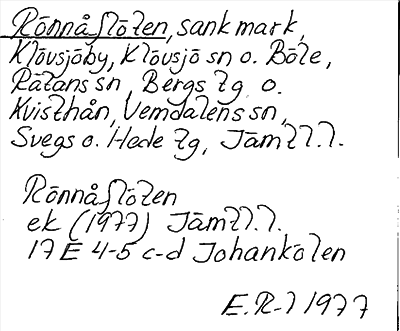 Rönnåflöten, sank mark,
Klövsjöby, Klövsjö sn o. Böle,
Rätans sn, Bergs tg o.
Kvisthån, Vemdalens sn,
Svegs o. Hede tg, Jämtl.l.
Rönnåflöten
ek (1977) Jämtl.l.
17 E 4-5 c-d Johankölen
E.R-l 1977